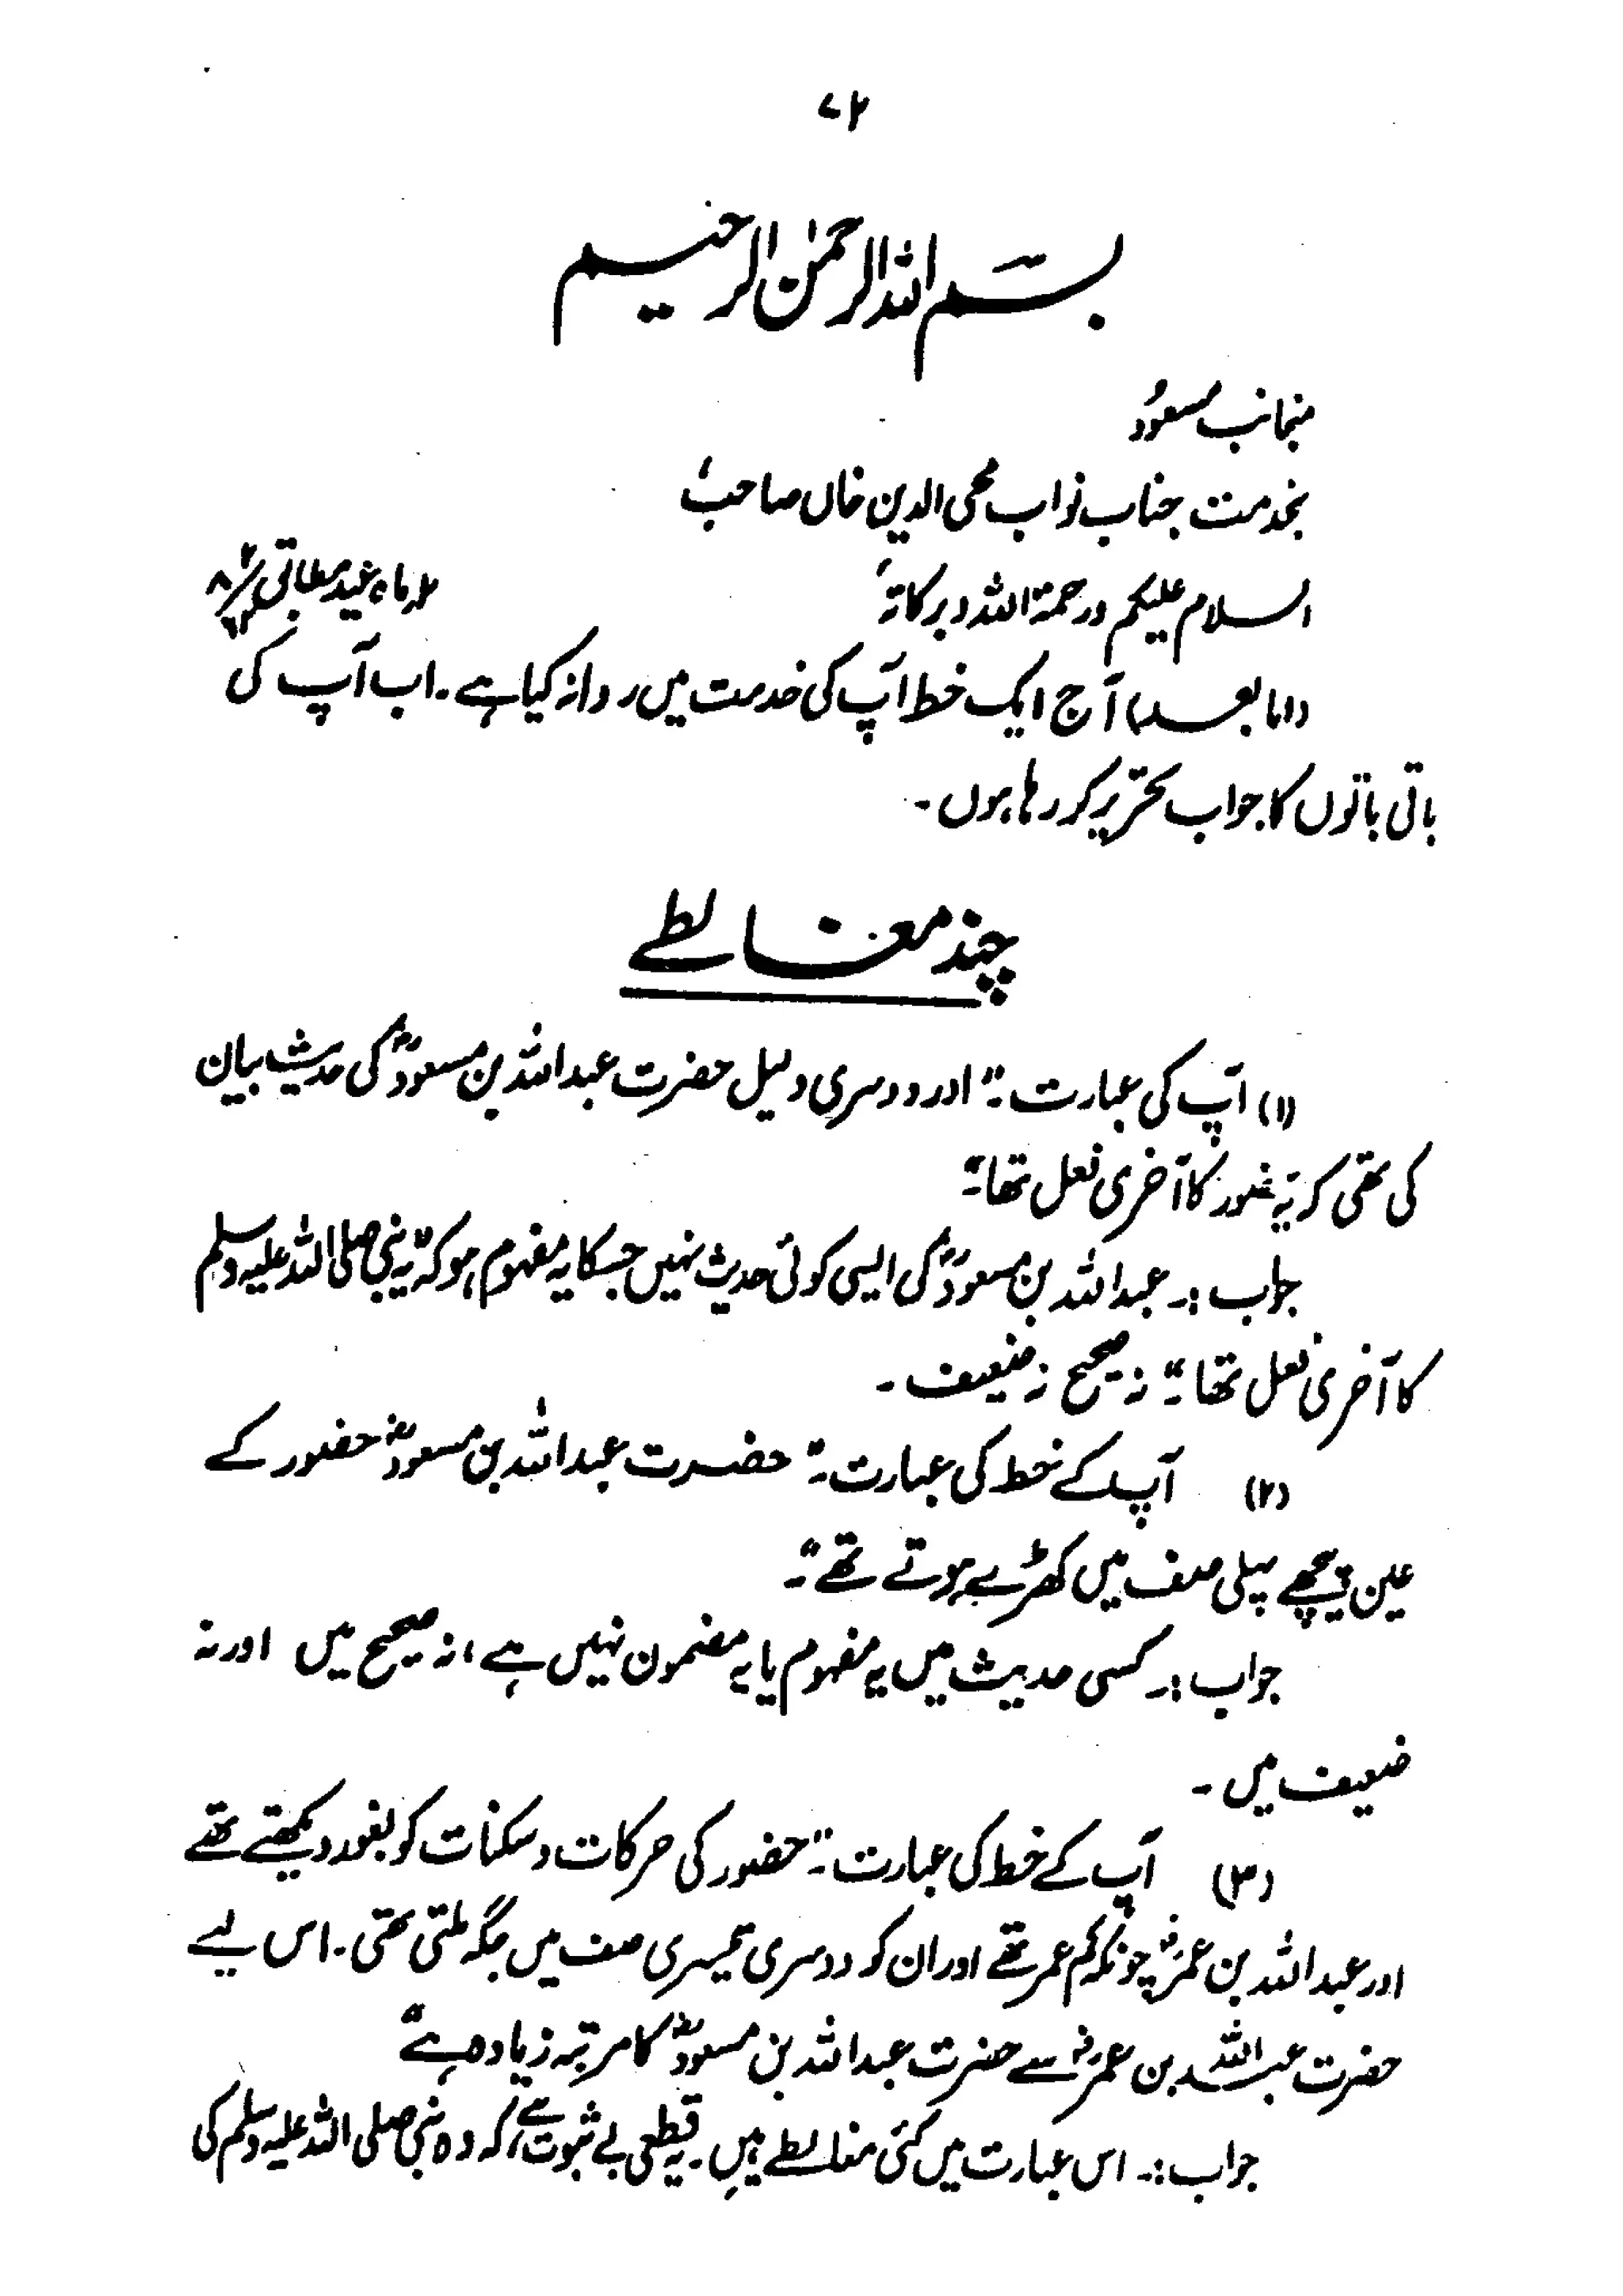 ۷۲
بسم اللہ الرحمٰن الرحیم
منجانب مسعود
بخدمت جناب نواب محی الدین خاں صاحب
السلام علیکم ورحمۃ اللہ وبرکاتہٗ
ماہ عید مطابق
(اما بعد) آج ایک خط آپ کی خدمت میں روانہ کیا ہے۔ اب آپ کی
باقی باتوں کا جواب تحریر کر رہا ہوں۔
چند مغالطے
(۱) آپ کی عبارت۔" اور دوسری دلیل حضرت عبداللہ بن مسعودؓ کی حدیث بیان
کی تھی کہ یہ حضور کا آخری فعل تھا۔"
جواب:۔ عبداللہ بن مسعودؓ کی ایسی کوئی حدیث نہیں جس کا یہ مفہوم ہو کہ "یہ نبی صلی اللہ علیہ وسلم
کا آخری فعل تھا۔" نہ صحیح نہ ضعیف۔
(۲) آپ کے خط کی عبارت۔" حضرت عبداللہ بن مسعودؓ حضور کے
عین پیچھے پہلی صف میں کھڑے ہوتے تھے۔"
جواب:۔ کسی حدیث میں یہ مفہوم یا یہ مضمون نہیں ہے، نہ صحیح میں اور نہ
ضعیف میں۔
(۳) آپ کے خط کی عبارت۔" حضور کی حرکات و سکنات کو بغور دیکھتے تھے
اور عبداللہ بن عمرؓ چونکہ کم عمر تھے اور ان کو دوسری تیسری صف میں جگہ ملتی تھی۔ اس لیے
حضرت عبداللہ بن عمرؓ سے حضرت عبداللہ بن مسعودؓ کا مرتبہ زیادہ ہے"
جواب:۔ اس عبارت میں کئی مغالطے ہیں۔ یہ قطعی بے ثبوت ہے، کہ وہ نبی صلی اللہ علیہ وسلم کی